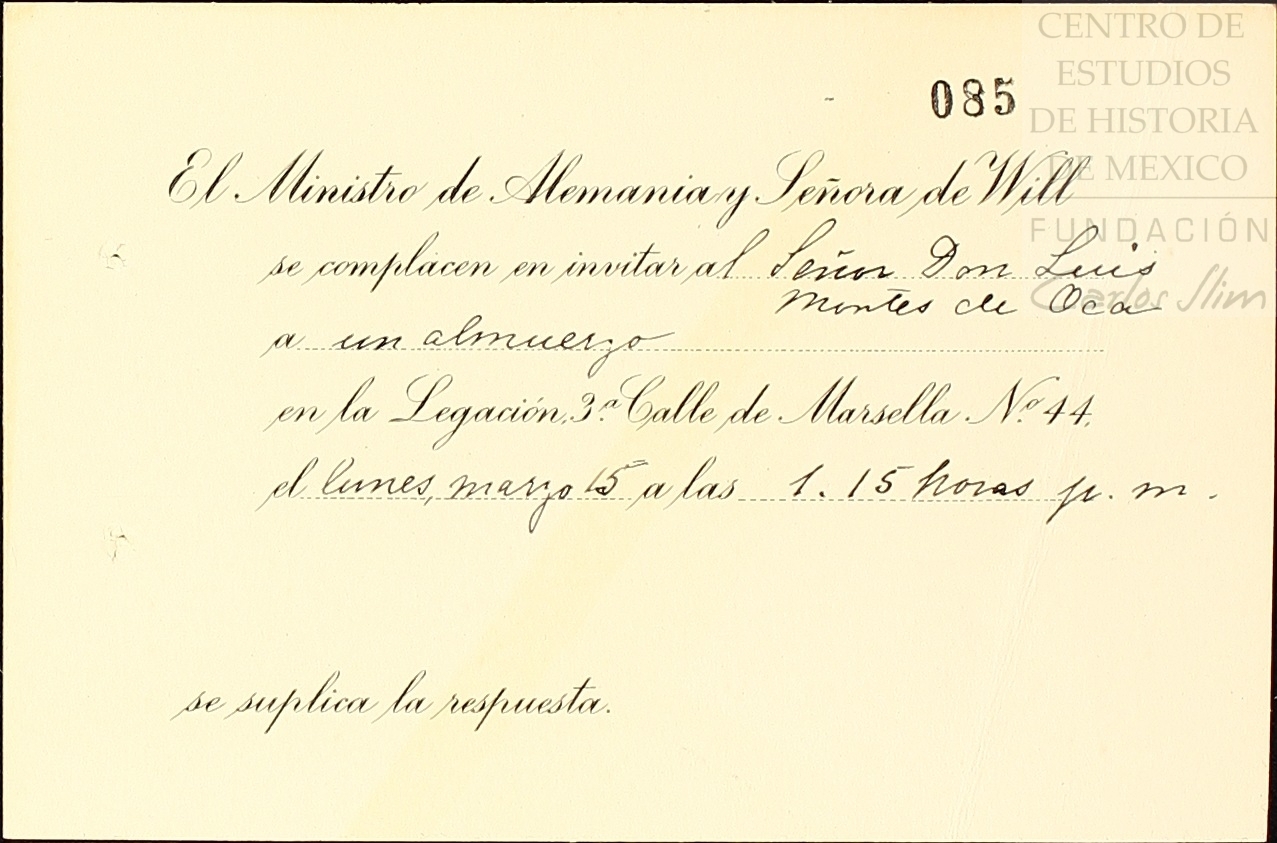 CENTRO DE
ESTUDIOS
DE HISTORIA
DE MEXICO
FUNDACIÓN
Carlos Slim
085
El Ministro de Alemania y Señora de Will
se complacen en invitar al Señor Don Luis
Montes de Oca
a un almuerzo
en la Legación, 3.ª Calle de Marsella Nº 44,
el lunes, marzo 15 a las 1.15 horas p. m.
se suplica la respuesta.